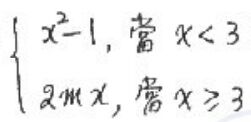 x²-1, 當 x < 3
2mx, 當 x ≥ 3